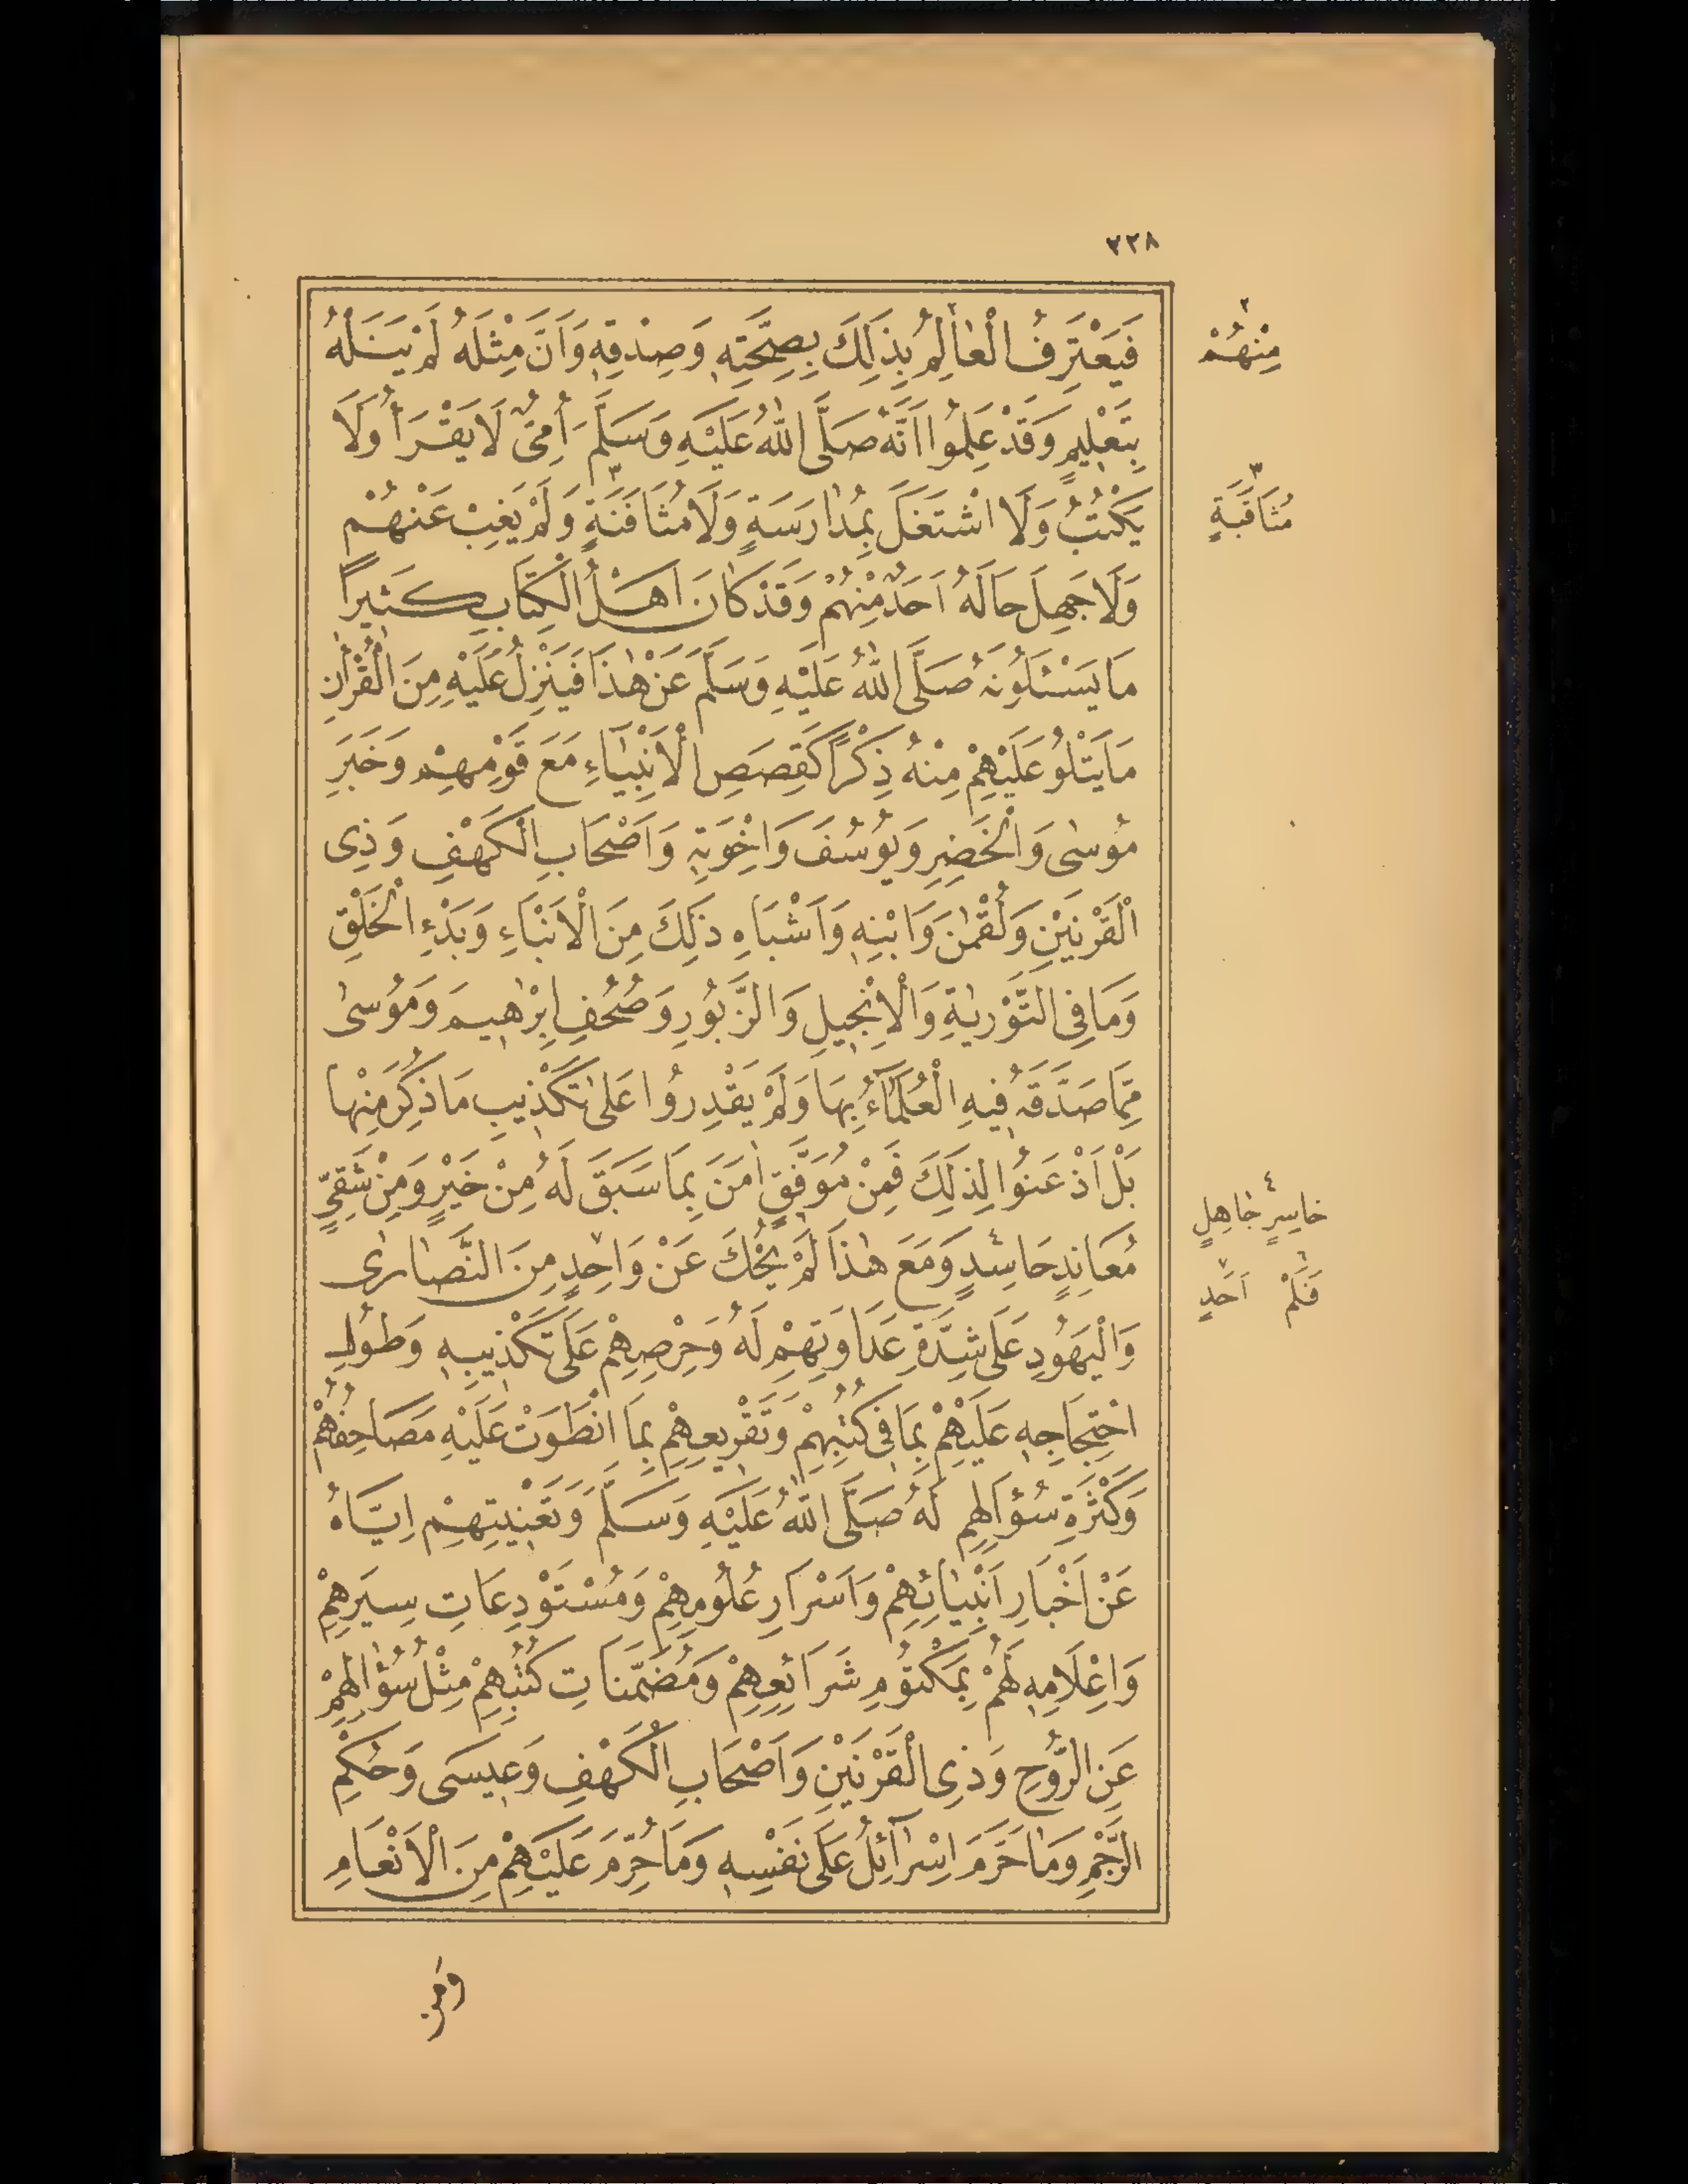 ٢٢٨
فَيَعْتَرِفُ الْعَالِمُ بِذَلِكَ بِصِحَّتِهِ وَصِدْقِهِ وَاَنَّ مِثْلَهُ لَمْ يَنَلْهُ
بِتَعْلِيمٍ وَقَدْ عَلِمُوا اَنَّهُ صَلَّى اللّٰهُ عَلَيْهِ وَسَلَّمَ اُمِّىٌّ لَا يَقْرَأُ وَلَا
يَكْتُبُ وَلَا اشْتَغَلَ بِمُدَارَسَةٍ وَلَا مُثَافَنَةٍ وَلَمْ يَغِبْ عَنْهُمْ
وَلَا جَهِلَ حَالَهُ اَحَدٌ مِنْهُمْ وَقَدْ كَانَ اَهْلُ الْكِتَابِ كَثِيرًا
مَا يَسْئَلُونَهُ صَلَّى اللّٰهُ عَلَيْهِ وَسَلَّمَ عَنْ هٰذَا فَيَنْزِلُ عَلَيْهِ مِنَ الْقُرْاٰنِ
مَا يَتْلُو عَلَيْهِمْ مِنْهُ ذِكْرًا كَقِصَصِ الْاَنْبِيَاءِ مَعَ قَوْمِهِمْ وَخَبَرِ
مُوسٰى وَالْخَضِرِ وَيُوسُفَ وَاِخْوَتِهِ وَاَصْحَابِ الْكَهْفِ وَذِى
الْقَرْنَيْنِ وَلُقْمٰنَ وَابْنِهِ وَاَشْبَاهِ ذَلِكَ مِنَ الْاَنْبَاءِ وَبَدْءِ الْخَلْقِ
وَمَا فِى التَّوْرٰيةِ وَالْاِنْجِيلِ وَالزَّبُورِ وَصُحُفِ اِبْرٰهِيمَ وَمُوسٰى
مِمَّا صَدَّقَهُ فِيهِ الْعُلَمَاءُ بِهَا وَلَمْ يَقْدِرُوا عَلٰى تَكْذِيبِ مَا ذُكِرَ مِنْهَا
بَلْ اَذْعَنُوا لِذَلِكَ فَمِنْ مُوَفَّقٍ اٰمَنَ بِمَا سَبَقَ لَهُ مِنْ خَيْرٍ وَمِنْ شَقِىٍّ
مُعَانِدٍ حَاسِدٍ وَمَعَ هٰذَا لَمْ يُحْكَ عَنْ وَاحِدٍ مِنَ النَّصَارٰى
وَالْيَهُودِ عَلَى شِدَّةِ عَدَاوَتِهِمْ لَهُ وَحِرْصِهِمْ عَلَى تَكْذِيبِهِ وَطُولِ
احْتِجَاجِهِ عَلَيْهِمْ بِمَا فِى كُتُبِهِمْ وَتَقْرِيعِهِمْ بِمَا انْطَوَتْ عَلَيْهِ مَصَاحِفُهُمْ
وَكَثْرَةِ سُؤَالِهِمْ لَهُ صَلَّى اللّٰهُ عَلَيْهِ وَسَلَّمَ وَتَعْنِيتِهِمْ اِيَّاهُ
عَنْ اَخْبَارِ اَنْبِيَائِهِمْ وَاَسْرَارِ عُلُومِهِمْ وَمُسْتَوْدِعَاتِ سِيَرِهِمْ
وَاِعْلَامِهِ لَهُمْ بِمَكْتُومِ شَرَائِعِهِمْ وَمُضَمَّنَاتِ كُتُبِهِمْ مِثْلُ سُؤَالِهِمْ
عَنِ الرُّوحِ وَذِى الْقَرْنَيْنِ وَاَصْحَابِ الْكَهْفِ وَعِيسَى وَحُكْمِ
الرَّجْمِ وَمَا حَرَّمَ اِسْرَآئِلُ عَلَى نَفْسِهِ وَمَا حُرِّمَ عَلَيْهِمْ مِنَ الْاَنْعَامِ
وَمِنَ
٢
مِنْهُمْ
٣
مُثَاقَبَةٍ
٤
خَاسِرٍ جَاهِلٍ
٦ ٧
فَلَمْ اَحَدٍ